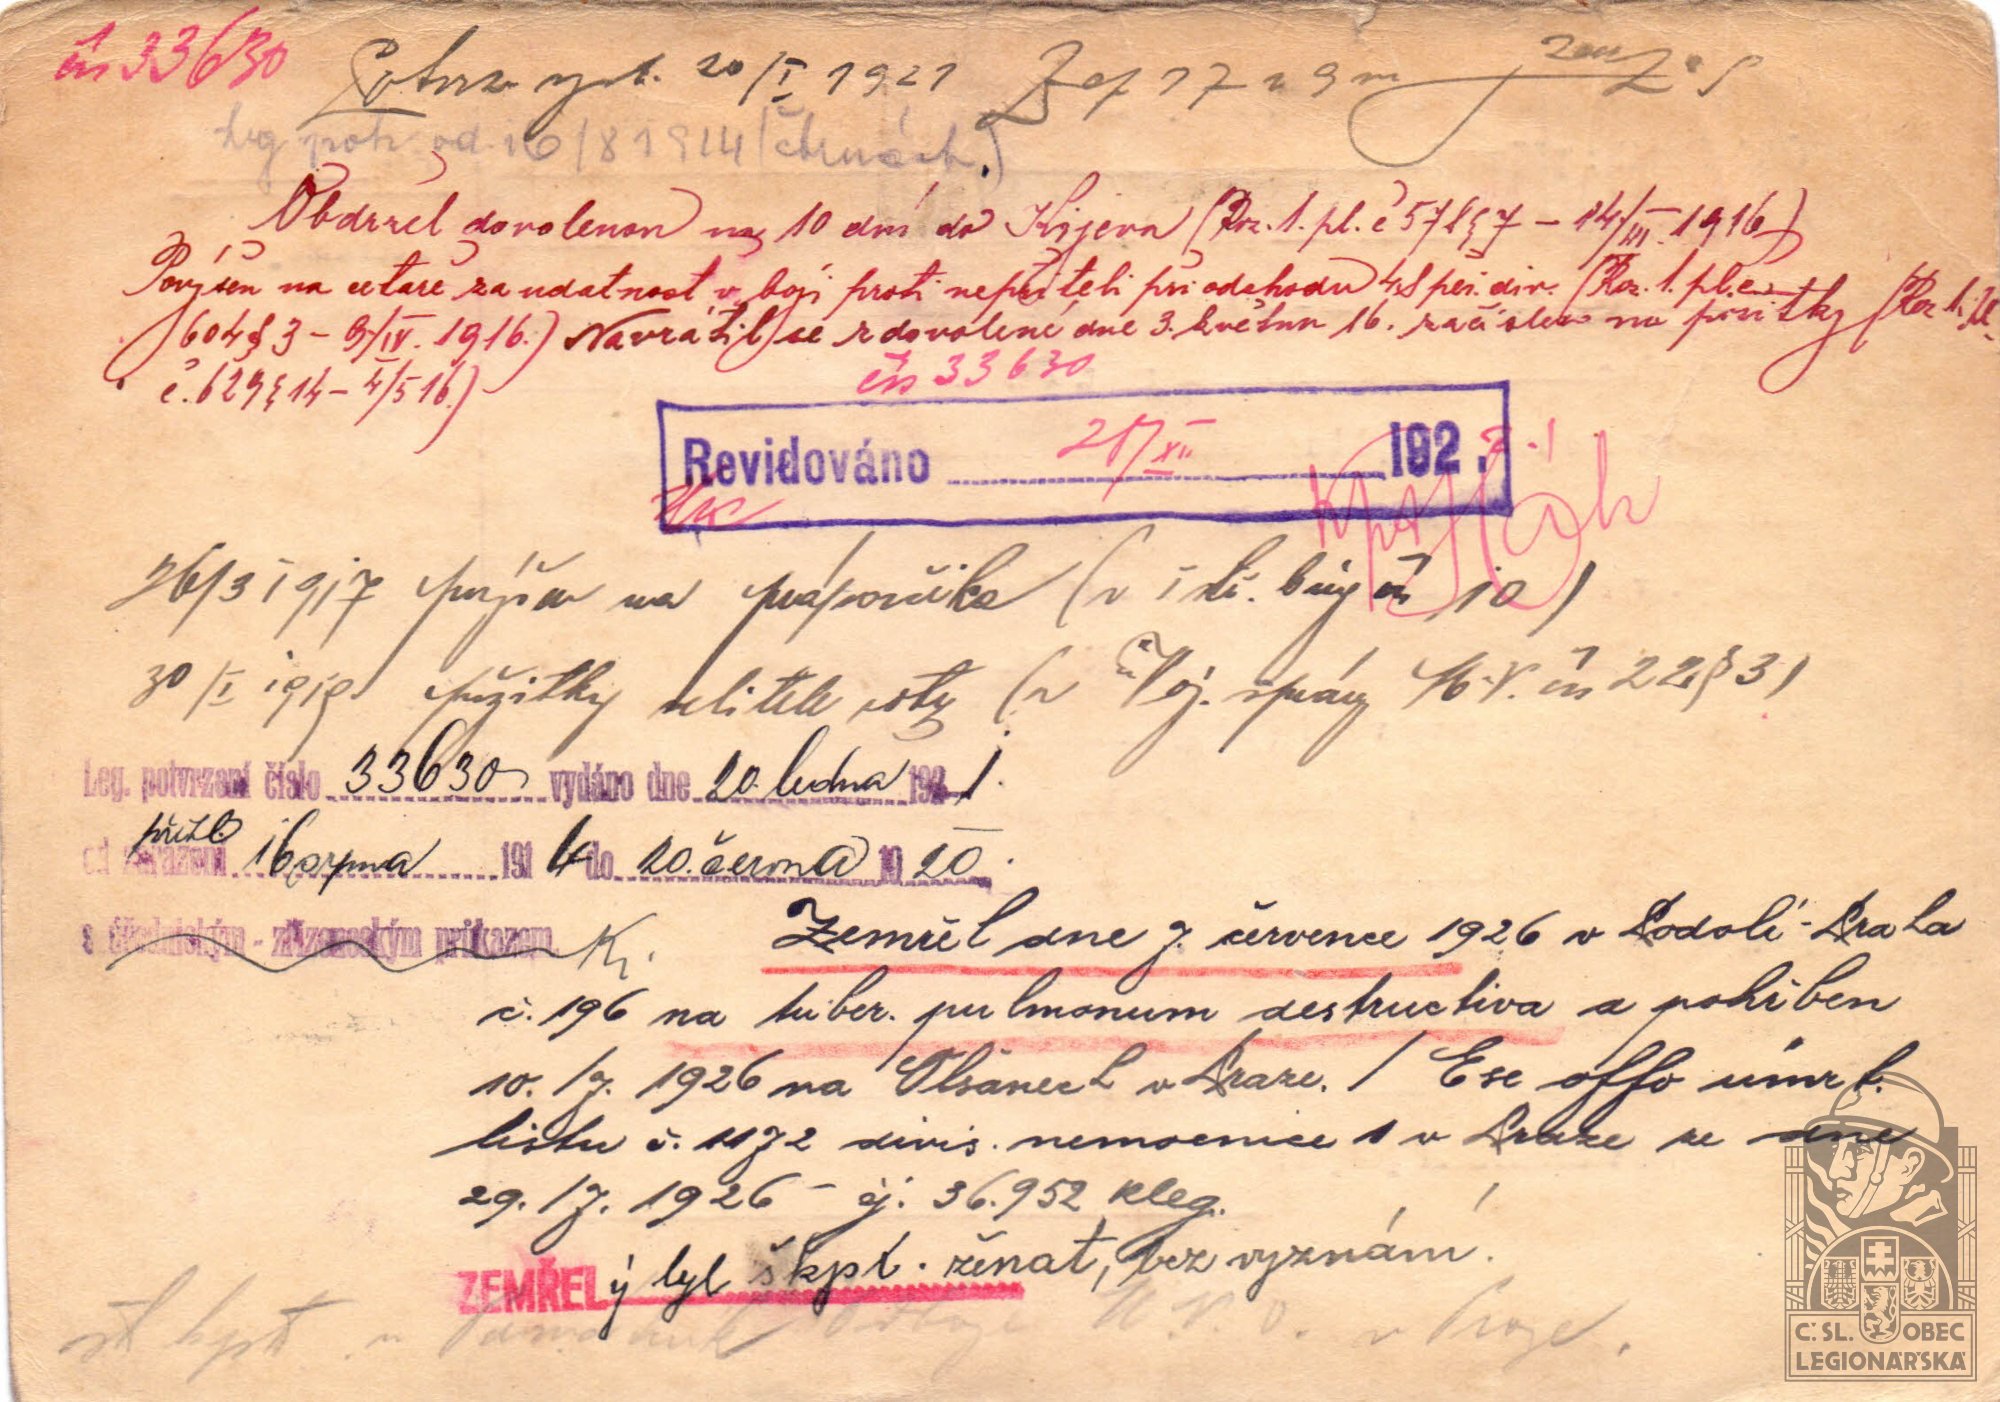 čís 33630
Potvrz. vyd. 20/I 1921
leg potv. od 16/8 1914
Obdržel dovolenou na 10 dní do Kyjeva (Roz. 1. pl. č 571 § 7 – 14/III. 1916)
Povýšen na četaře za udatnost v boji proti nepříteli při odchodu 4. pěš. div. (Roz. 1. pl. č.
604 § 3 – 9/IV. 1916.) Navrátil se z dovolené dne 3. května 16. začislen na požitky (Roz. 1. pl.
č. 629 § 14 – 4/5 16.)
čís 33630
Revidováno 21/XII 192
26/3 1917 povýšen na práporčíka (v I stř. brig čís 10)
30/I 1919 požitky velitele roty (v Voj. správy M.V. čís 22 § 3)
Leg. potvrzení číslo 33630 vydáno dne 20. ledna 1921.
od zařazení přihl. 16 srpna 1914 do 20. června 1920.
s úřednickým - zřízeneckým průkazem. Kr.
Zemřel dne 7. července 1926 v Podolí-Praha
č. 196 na tuber. pulmonum destructiva a pohřben
10./7. 1926 na Olšanech v Praze. / Ese offo úmrt.
listu č. 1172 divis. nemocnice 1 v Praze ze dne
29./7. 1926 – čj. 36.952 kleg.
ZEMŘELý byl škpt. ženat, bez vyznání.
v Praze.
Č.SL. OBEC
LEGIONÁŘSKÁ